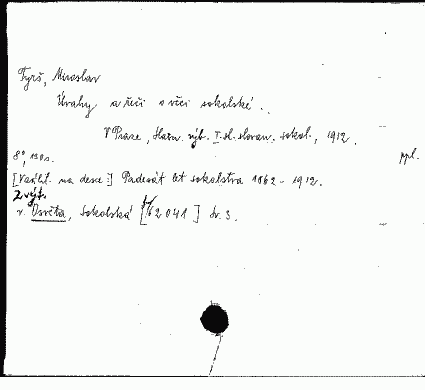 Tyrš, Miroslav
Úvahy a řeči o věci sokolské.
V Praze, Slavn. výb. I. sl. slovan. sokol., 1912.
8°, 130 s.
ppl.
[Vazbt. na desce:] Padesát let sokolstva 1862 - 1912.
2 výt.
v. Osvěta, Sokolská [62041] sv. 3.